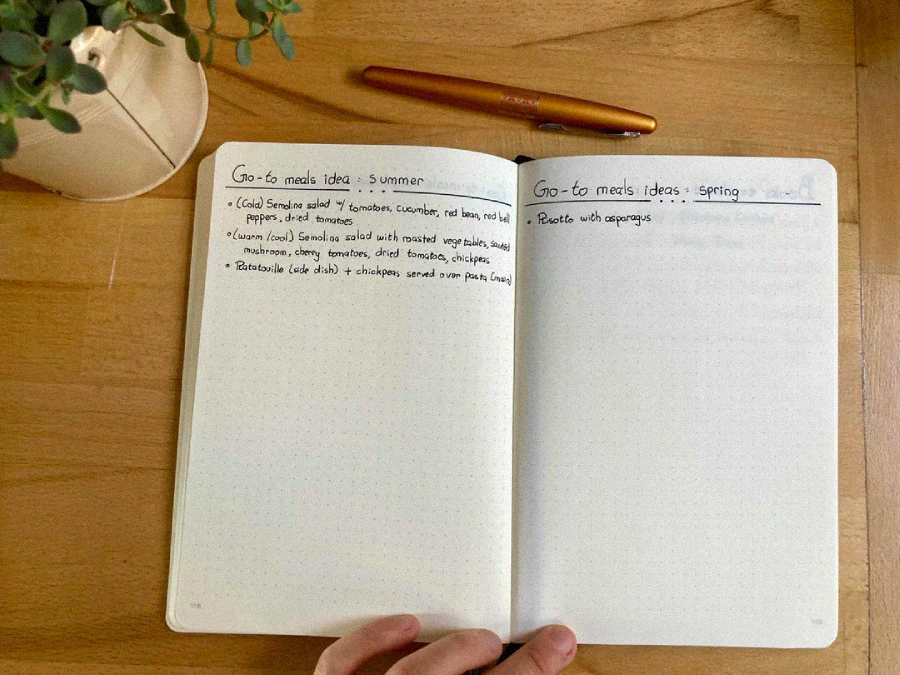 Go-to meals idea : summer
• (Cold) Semolina salad w/ tomatoes, cucumber, red bean, red bell
peppers, dried tomatoes
• (warm/cool) Semolina salad with roasted vegetables, sautéed
mushroom, cherry tomatoes, dried tomatoes, chickpeas
• Ratatouille (side dish) + chickpeas served over pasta (main)
Go-to meals ideas : spring
• Risotto with asparagus